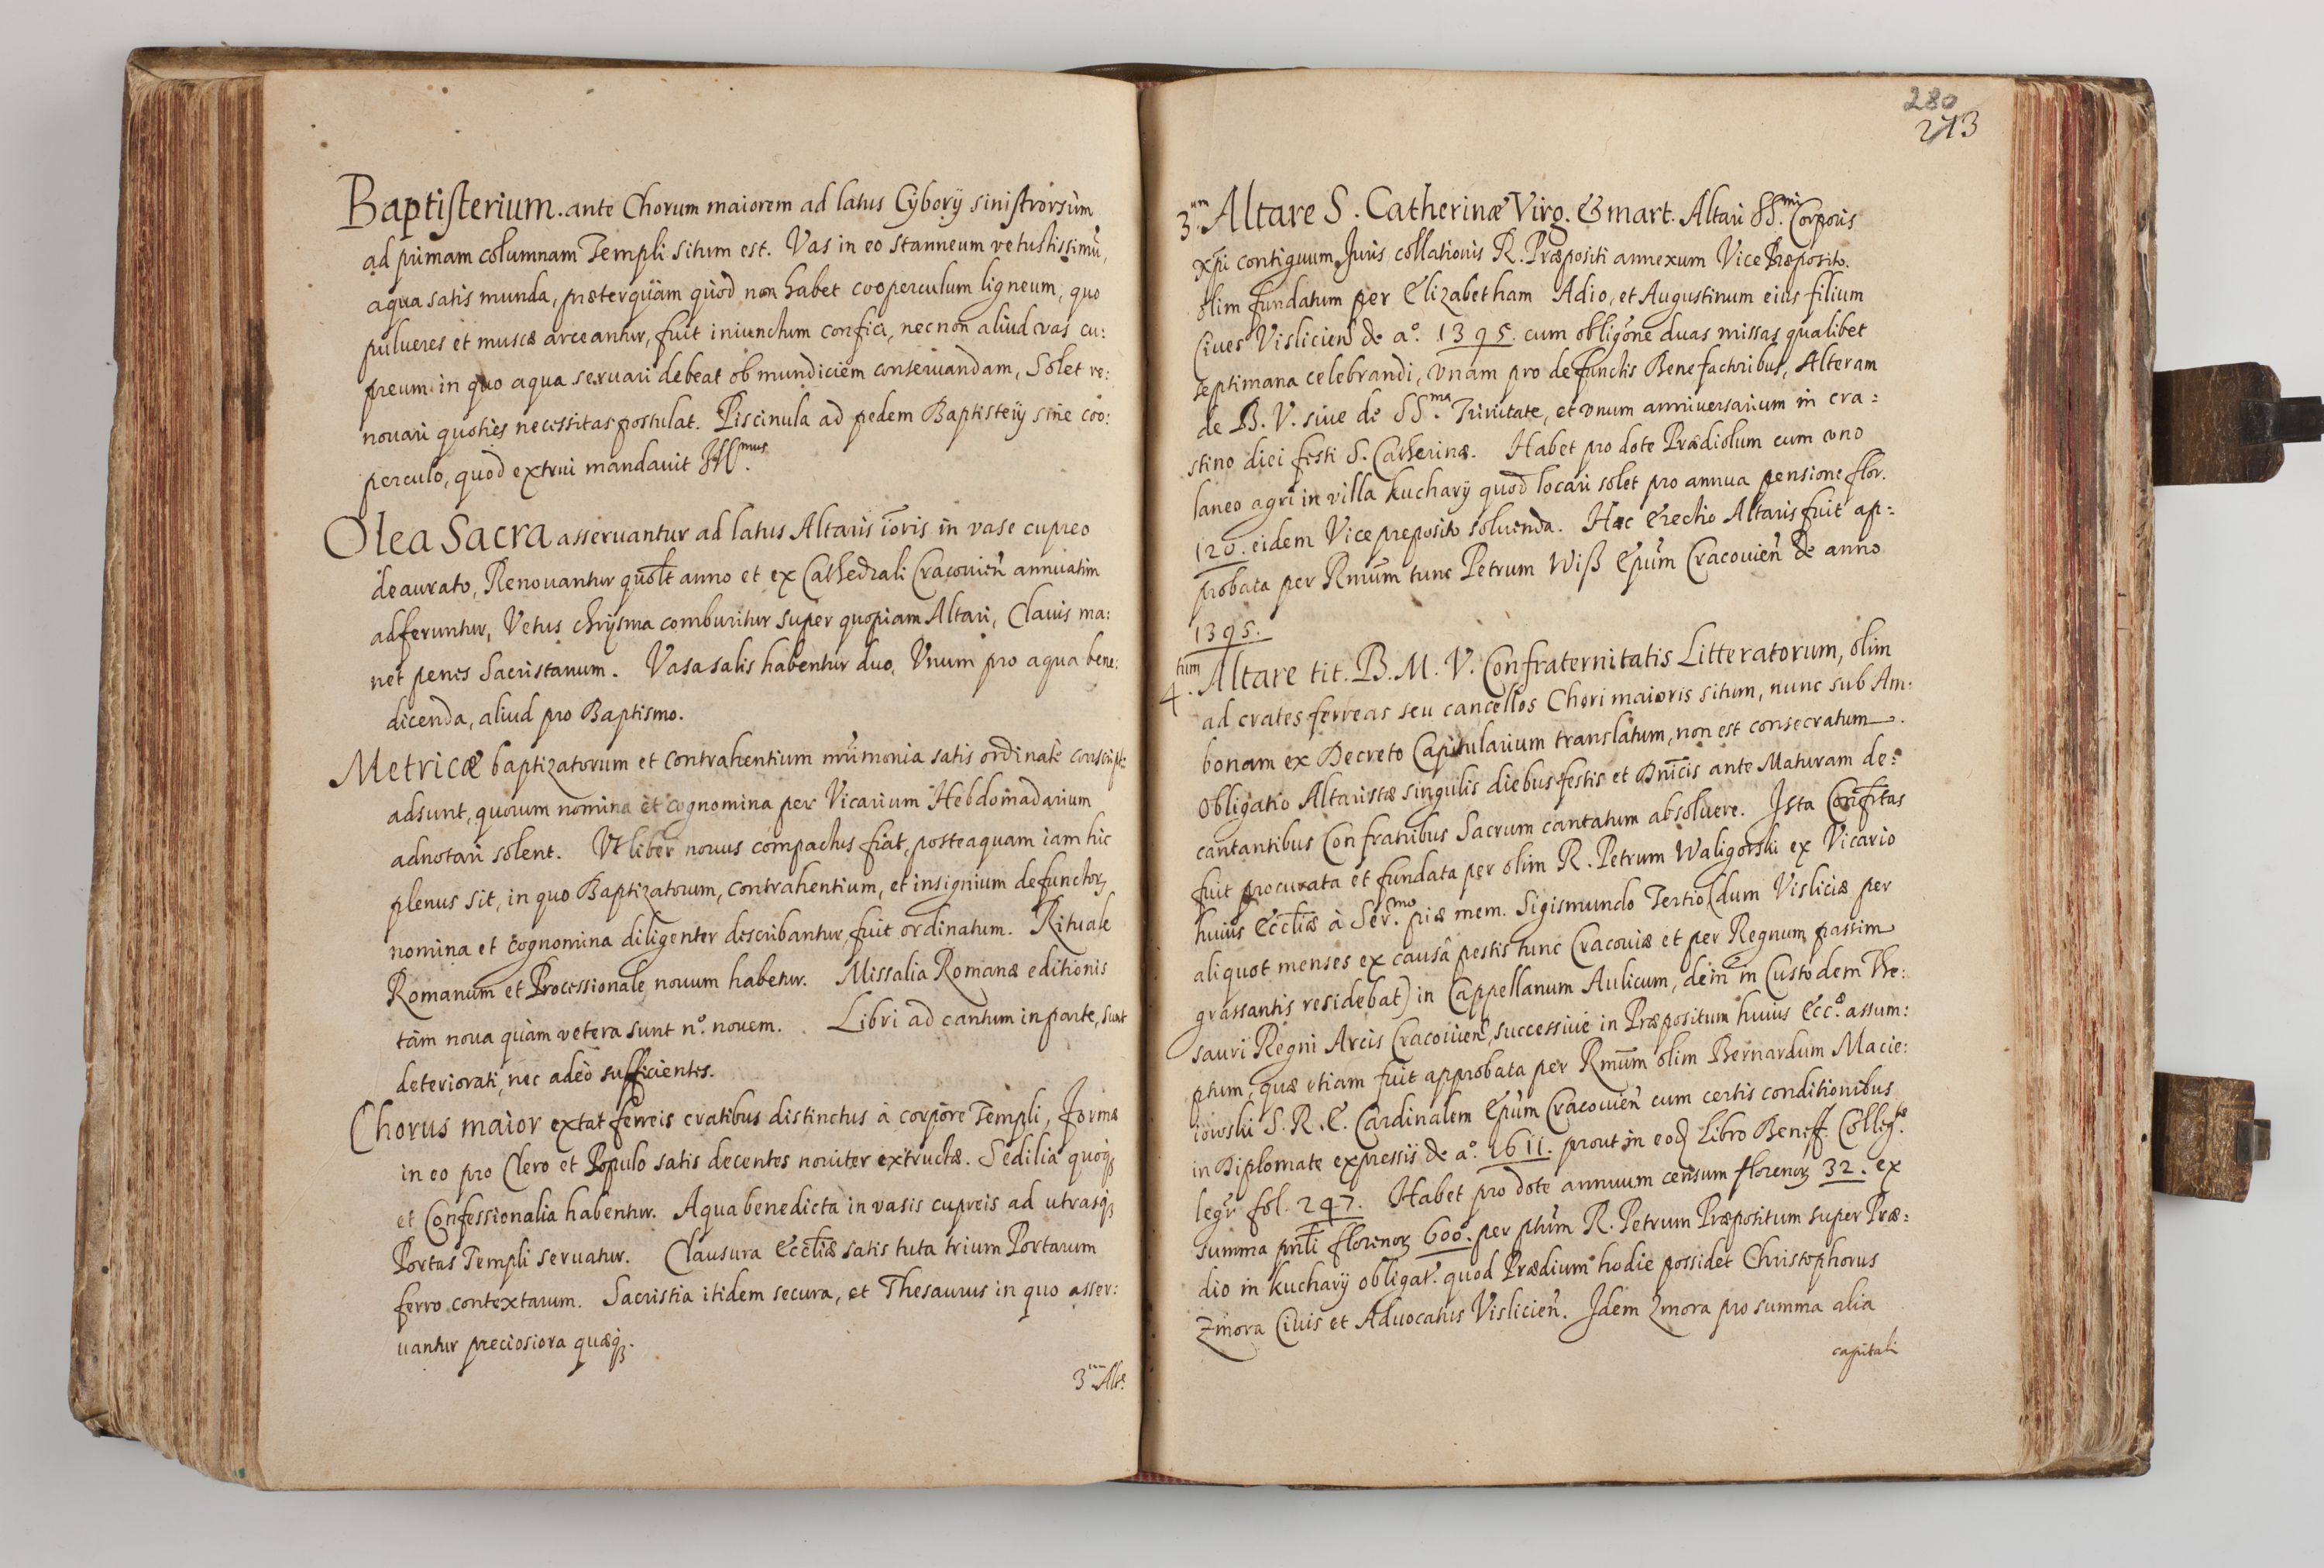 Baptisterium. ante Chorum maiorem ad latus Cyborÿ sinistrorsùm
ad primam columnam Templi situm est. Vas in eo stanneum vetustissimũ,
aqua satis munda, præterquàm quòd non habet cooperculum ligneum, quo
pulueres et muscæ arceantur, fuit iniunctum confici, necnon aliud vas cu:
preum in quo aqua seruari debeat ob mundiciem conseruandam, Solet re:
nouari quoties necessitas postulat. Piscinula ad pedem Baptisterÿ sine coo:
perculo, quod extrui mandauit Ill.mus
Olea Sacra asseruantur ad latus Altaris ioris in vase cupreo
deaurato, Renouantur quolt anno et ex Cathedrali Cracouień annuatim
adferuntur, Vetus chrysma comburitur super quopiam Altari, Clauis ma:
net penes Sacristanum. Vasa salis habentur duo, Vnum pro aqua bene:
dicenda, aliud pro Baptismo.
Metricæ baptizatorum et contrahentium mrimonia satis ordinatè conscript:
adsunt, quorum nomina et cognomina per Vicarium Hebdomadarium
adnotari solent. Vt liber nouus compactus fiat, posteaquam iam hic
plenus sit, in quo Baptizatorum, contrahentium, et insignium defunctorꝝ
nomina et cognomina diligenter describantur, fuit ordinatum. Rituale
Romanum et Processionale nouum habetur. Missalia Romanæ editionis
tàm noua quàm vetera sunt n.º nouem. Libri ad cantum in parte, sunt
deteriorati, nec adeò sufficientes.
Chorus maior extat ferreis cratibus distinctus à corpore Templi, Formæ
in eo pro Clero et Populo satis decentes nouiter extructæ. Sedilia quoqꝫ
et Confessionalia habentur. Aqua benedicta in vasis cupreis ad utrasqꝫ
Portas Templi seruatur. Clausura Eccliæ satis tuta trium Portarum
ferro contextarum. Sacristia itidem secura, et Thesaurus in quo asser:
uantur preciosiora quæqꝫ.
3.um Alt.e
280
273
3.um Altare S. Catherinæ Virg. & mart. Altari SS.mi Corporis
Xp̃i contiguum Juris collationis R. Præpositi annexum Vice Præposito.
olim fundatum per Elizabetham Adio, et Augustinum eius filium
Ciues Vislicień de a.º 1395. cum obligõne duas missas qualibet
septimana celebrandi, vnam pro defunctis Benefactoribus, Alteram
de B. V. siue de SS.ma Trinitate, et vnum anniuersarium in cra=
stino diei festi S. Catherinæ. Habet pro dote Prædiolum cum vno
laneo agri in villa Kucharÿ quod locari solet pro annua pensione flor.
120. eidem Vicepreposito soluenda. Hæc Erectio Altaris fuit ap=
probata per Rmũm tunc Petrum Wiß Epũm Cracouień de anno
1395.
4.tum Altare tit. B. M. V. Confraternitatis Litteratorum, olim
ad crates ferreas seu cancellos Chori maioris situm, nunc sub Am:
bonam ex Decreto Capitularium translatum, non est consecratum.
Obligatio Altaristæ singulis diebus festis et Dnĩcis ante Maturam de=
cantantibus Confratribus Sacrum cantatum absoluere. Ista Confrtas
fuit procurata et fundata per olim R. Petrum Waligorski ex Vicario
huius Eccliæ à Ser.mo piæ mem. Sigismundo Tertio (dum Visliciæ per
aliquot menses ex causâ pestis tunc Cracouiæ et per Regnum passim
grassantis residebat) in Cappellanum Aulicum, dein in Custodem The:
sauri Regni Arcis Cracouień, successiuè in Præpositum huius Ecc.æ assum:
ptum, quæ etiam fuit approbata per Rmũm olim Bernardum Macie:
iowski S. R. E. Cardinalem Epũm Cracouień cum certis conditionibus
in Diplomate expressis de a.º 1611. prout in eod Libro Benef. Colleg.tæ
legr fol. 247. Habet pro dote annuum censum florenorꝝ 32. ex
summa prnlĩ florenorꝝ 600. per ptũm R. Petrum Præpositum super Præ=
dio in Kucharÿ obligat. quod Prædium hodie possidet Christophorus
Zmora Ciuis et Aduocatus Vislicień. Idem Zmora pro summa alia
capitali